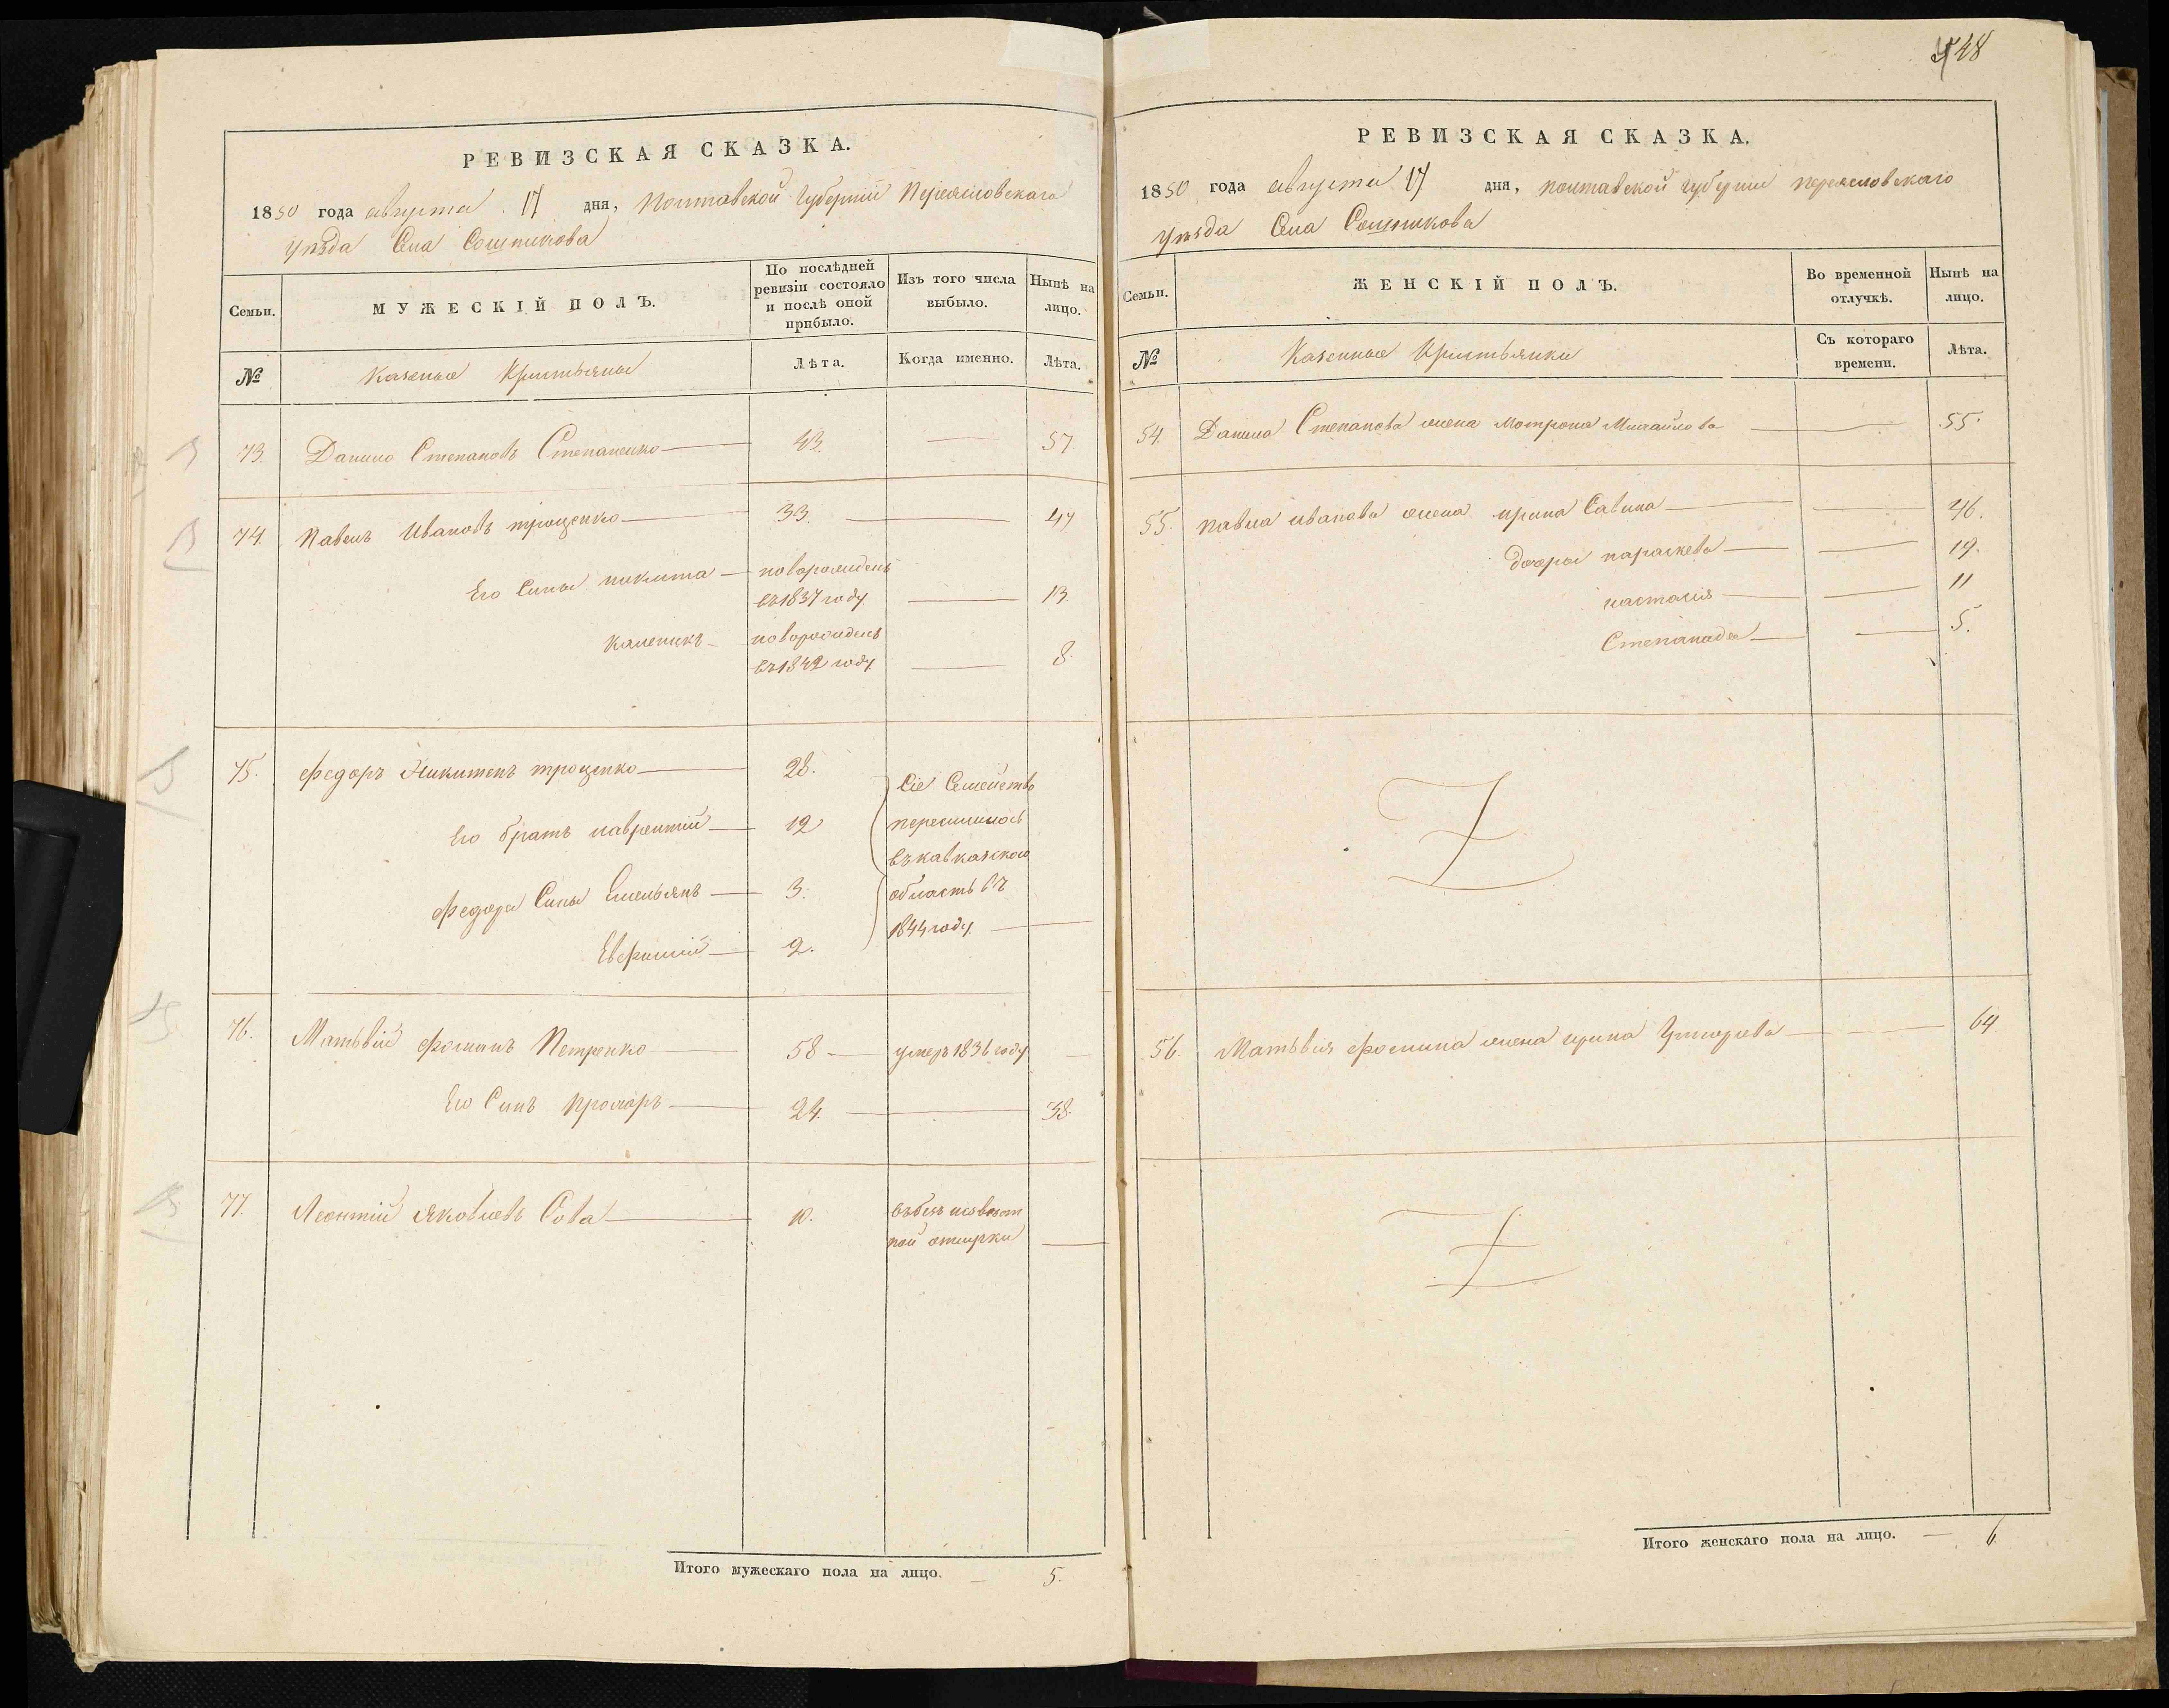 748
РЕВИЗСКАЯ СКАЗКА.
1850 года августа 17 дня, Полтавской Губернїи Переясловскаго
уѣзда Села Сошникова
Семьи. МУЖЕСКІЙ ПОЛЪ. По послѣдней ревизіи состояло и послѣ оной прибыло. Изъ того числа выбыло. Нынѣ на лицо.
№ Казеные Крестьяны Лѣта. Когда именно. Лѣта.
73. Данило Степановъ Степаненко 43. 57.
74. Павелъ Ивановъ троценко 33. 47
Его Сины никита новорожденъ
въ 1837 году 13
Каленикъ новорожденъ
въ 1842 году 8.
75. Федоръ Никитенъ троценко 28. Сіе Семейство
Его братъ лаврентій 12 переселилось
въ кавказкою
Федора Сины Емельянъ 3. область въ
1844 году
Евфимій 2.
76. Матьвій Фоминъ Петренко 58 умеръ 1836 году
Его Синъ Прохоръ 24. 38.
77. Леонтій Яковлевъ Сова 10. въбезъизвѣст
ной отлучки
Итого мужескаго пола на лицо. 5.
РЕВИЗСКАЯ СКАЗКА.
1850 года августа 17 дня, полтавской губерніи переясловскаго
уѣзда Села Сошникова
Семьи. ЖЕНСКІЙ ПОЛЪ. Во временной отлучкѣ. Нынѣ на лицо.
№ Казенные Крестьянки Съ котораго времени. Лѣта.
54. Данила Степанова жена Мотрона Михайлова 55.
55. павла иванова жена ирина Савина 46.
дочери параскева 19.
насталія 11
Степанида 5.
56. Матьвія Фомина жена ирина Григорева 64
Итого женскаго пола на лицо. 6.